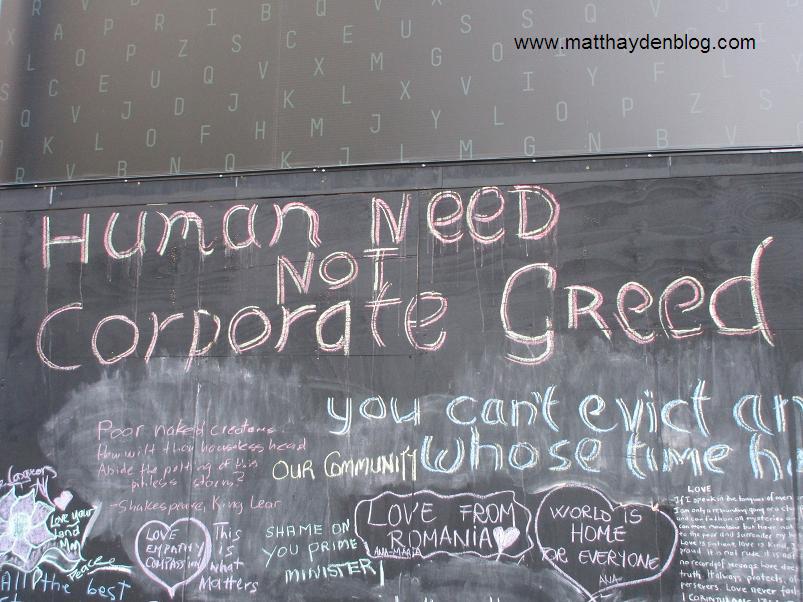 www.matthaydenblog.com
HUman NeeD
NOT
Corporate GReed
you can't evict an
whose time ha
Poor naked creatures
How wilt thou houseless head
Abide the pelting of this
pitiless storm?
-Shakespeare, King Lear
OUR COMMUNITY
Love Your
Land
Man
Peace
All the best
LOVE
EMPATHY
COMPASSION
This
is
what
Matters
SHAME ON
YOU PRIME
MINISTER!
LOVE FROM
ROMANIA
ANA-MARIA
WORLD IS
HOME
FOR EVERYONE
ANA
LOVE
If I speak in the tongues of men
I am only a resounding gong or a
and can fathom all mysteries
can move mountains but have not
to the poor and surrender my
Love is patient love is kind
proud it is not rude it is
no record of wrongs Love does
truth It always protects
perseveres. Love never fail
1 CORINTHIANS